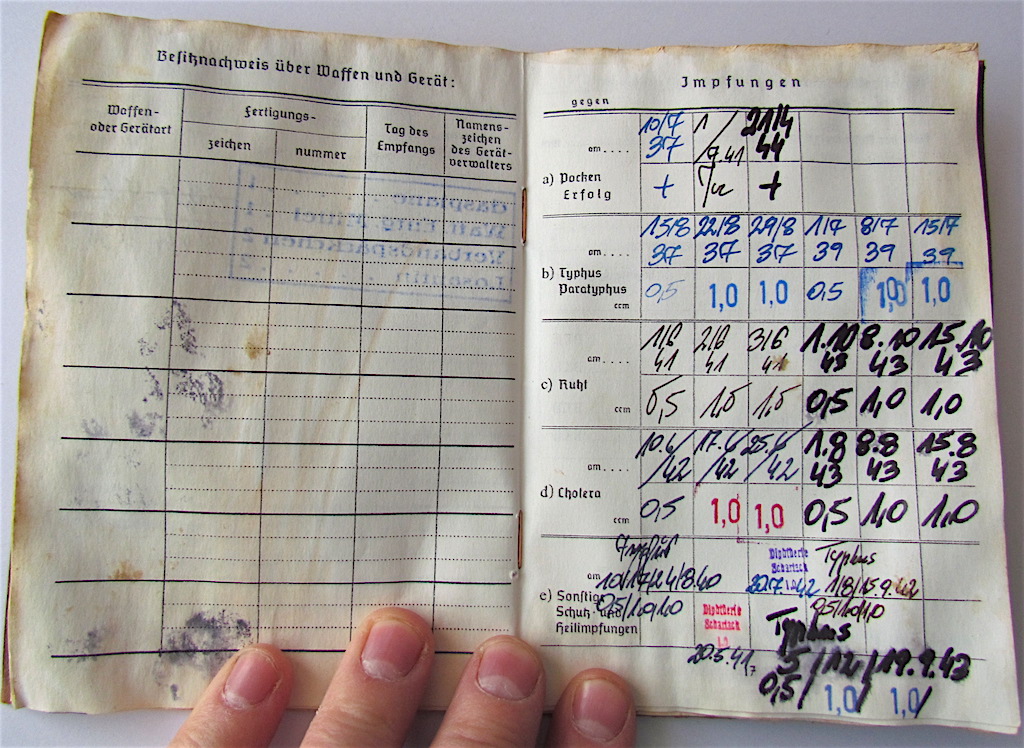 Besitznachweis über Waffen und Gerät:
Waffen- oder Gerätart
Fertigungs-
zeichen
nummer
Tag des Empfangs
Namens- zeichen des Gerät- verwalters
Impfungen
gegen
10/7 1/ 21/4
am.... 37 9.41 44
a) Pocken
Erfolg + +
15/8 22/8 29/8 1/7 8/7 15/7
am.... 37 37 37 39 39 39
b) Typhus
Paratyphus
ccm 0,5 1,0 1,0 0,5 1,0 1,0
1/6 2/6 3/6 1.10 8.10 15.10
am.... 41 41 41 43 43 43
c) Ruhr
ccm 0,5 1,0 1,0
10.6 17.6 25.6 1.8 8.8 15.8
am.... /42 /42 /42 43 43 43
d) Cholera
ccm 0,5 1,0 1,0 0,5 1,0 1,0
Diphtherie Typhus
Scharlach
am 1/8/15.9.42
e) Sonstige
Schutz- und
Heilimpfungen
Diphtherie
Scharlach
Typhus
20.5.41 5/12/19.9.43
0,5/ 1,0/ 1,0/